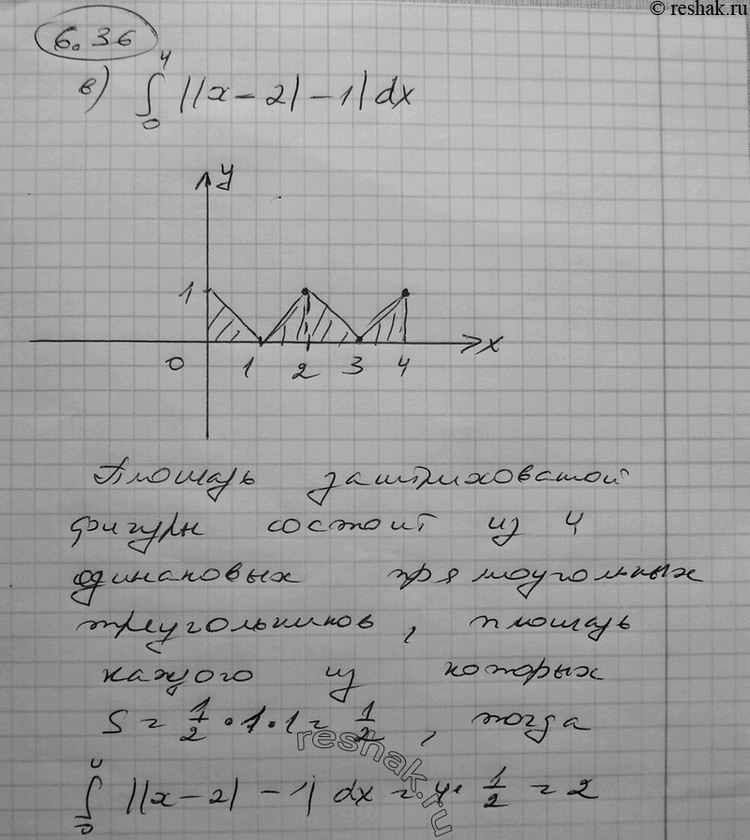 © reshak.ru
6.36
в) ∫₀⁴ ||x - 2| - 1| dx
y
1
0 1 2 3 4 x
Площадь заштрихованой
фигуры состоит из 4
одинаковых прямоугольных
треугольников, площадь
каждого из которых
S = 1/2 · 1 · 1 = 1/2, тогда
∫₀⁴ ||x - 2| - 1| dx = 4 · 1/2 = 2
reshak.ru